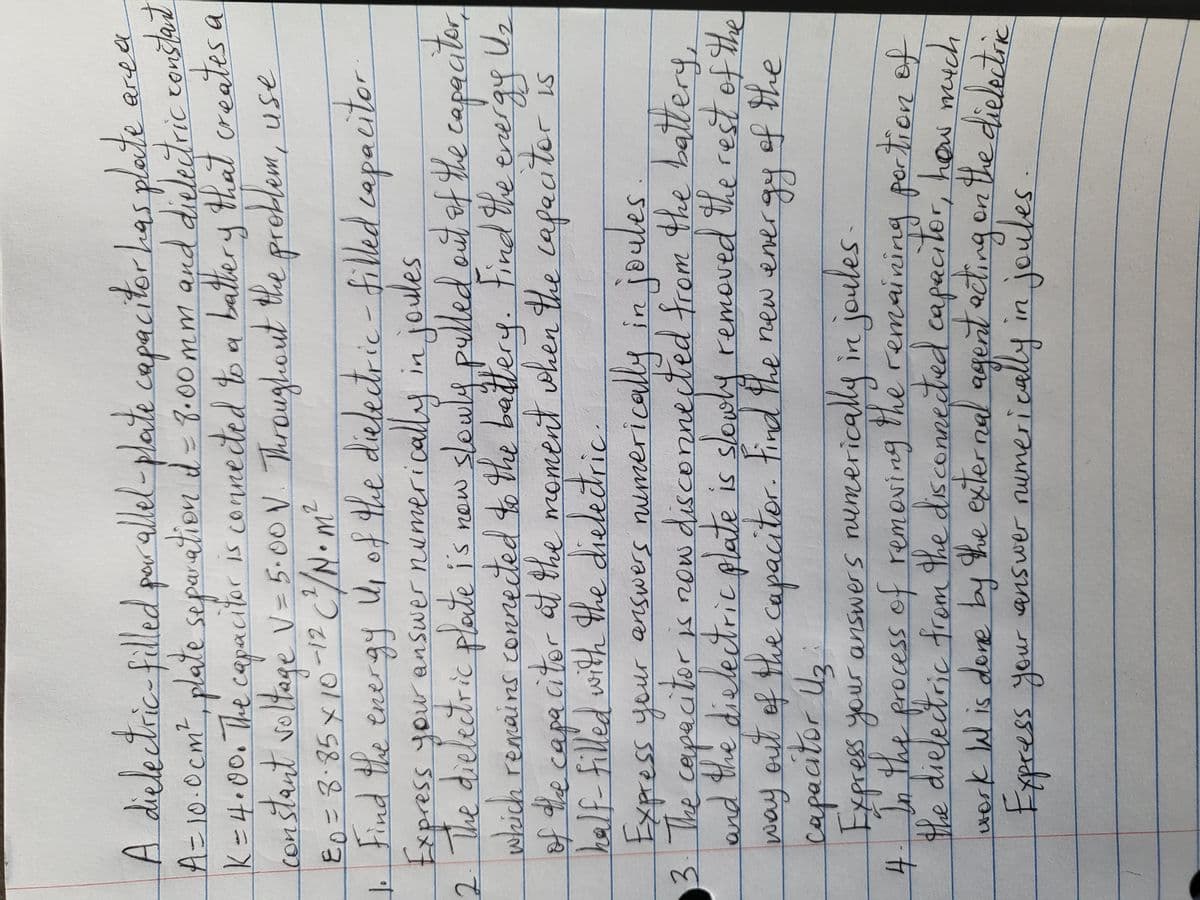 A dielectric-filled parallel-plate capacitor has plate area
A = 10.0 cm², plate separation d = 8.00 mm and dielectric constant
K = 4.00. The capacitor is connected to a bathery that creates a
constant voltage V = 5.00 V. Throughout the problem, use
ε0 = 8.85 x 10 -12 C²/N•m²
1. Find the energy U1 of the dielectric-filled capacitor.
Express your answer numerically in joules
2. The dielectric plate is now slowly pulled out of the capacitor,
which remains connected to the battery. Find the energy U2
of the capacitor at the moment when the capacitor is
half-filled with the dielectric.
Express your answers numerically in joules.
3. The capacitor is now disconnected from the battery,
and the dielectric plate is slowly removed the rest of the
way out of the capacitor. Find the new energy of the
capacitor U3.
Express your answers numerically in joules.
4. In the process of removing the remaining portion of
the dielectric from the disconnected capacitor, how much
work W is done by the external agent acting on the dielectric
Express your answer numerically in joules.